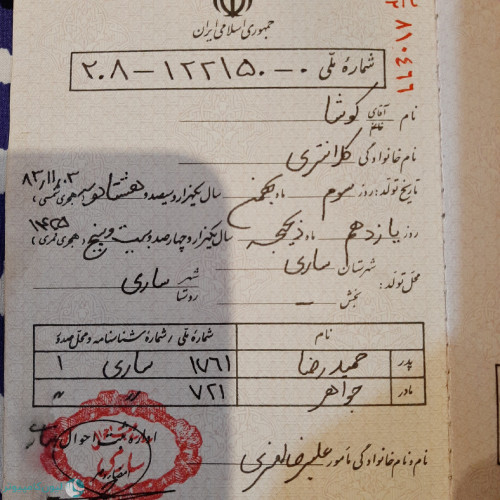 جمهوری اسلامی ایران
شماره ملی ۲۰۸-۱۲۲۱۵۰-۰
نام آقای خانم کوشا
نام خانوادگی کلانتری
۸۳/۱۱/۰۳
تاریخ تولد: روز سوم ماه بهمن سال یکهزار و سیصد و هشتاد و سه (هجری شمسی)
۱۴۲۵
روز یازدهم ماه ذیحجه سال یکهزار و چهارصد و بیست و پنج (هجری قمری)
محل تولد: شهرستان ساری شهر ساری
بخش - روستا
نام شماره ملی / شماره شناسنامه و محل صدور
پدر حمیدرضا ۱۷۶۱ ساری ۱
مادر جواهر ۷۲۱ " "
اداره ثبت احوال ساری
نام و نام خانوادگی مأمور علیرضا